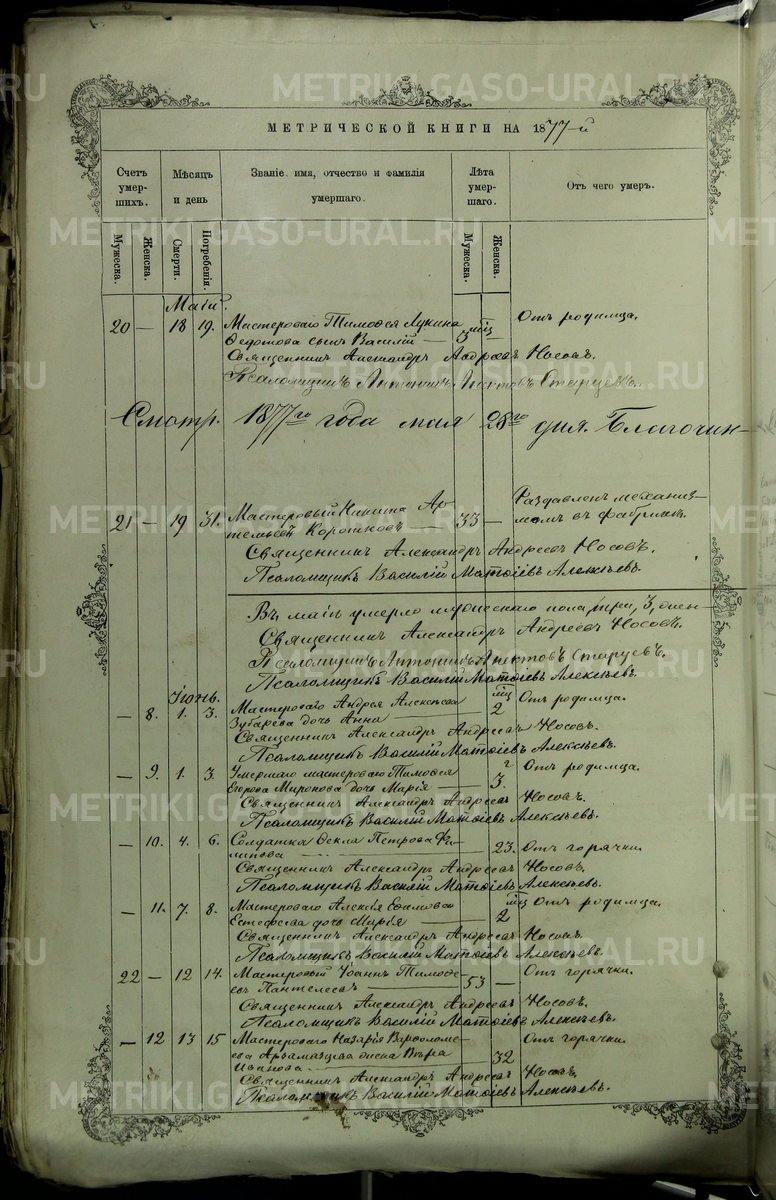 МЕТРИЧЕСКОЙ КНИГИ НА 1877-й
Счетъ умершихъ.
Мѣсяцъ и день
Званіе, имя, отчество и фамилія умершаго.
Лѣта умершаго.
Отъ чего умеръ.
Мужеска.
Женска.
Смерти.
Погребенія.
Мужеска.
Женска.
Маій.
20 — 18 19. Мастероваго Тимоѳея Лукина 3 мц — Отъ родимца.
Ѳедотова сынъ Василій —
Священникъ Александръ Андреевъ Носовъ.
Псаломщикъ Антонинъ Старцевъ.
Смотр. 1877го года мая 28го дня. Благочин-
21 — 29 31. Мастеровый Никита Ар- 33 — Раздавленъ механиз-
тельевъ Коротковъ — момъ въ фабрикѣ.
Священникъ Александръ Андреевъ Носовъ.
Псаломщикъ Василій Матѳіевъ Алексѣевъ.
Въ маіи умерло мужескаго пола три, 3,
Священникъ Александръ Андреевъ Носовъ.
Псаломщикъ Антонинъ Старцевъ.
Псаломщикъ Василій Матѳіевъ Алексѣевъ.
Іюнь.
— 8. 1. 3. Мастероваго Андрея Алексѣева 2 мц Отъ родимца.
Зубарева дочь Анна —
Священникъ Александръ Андреевъ Носовъ.
Псаломщикъ Василій Матѳіевъ Алексѣевъ.
— 9. 1. 3. Умершаго мастероваго Тимоѳея 3 г. Отъ родимца.
Егорова Миронова дочь Марія —
Священникъ Александръ Андреевъ Носовъ.
Псаломщикъ Василій Матѳіевъ Алексѣевъ.
— 10. 4. 6. Солдатка Ѳекла Петрова Фи- 23. Отъ горячки.
липова —
Священникъ Александръ Андреевъ Носовъ.
Псаломщикъ Василій Матѳіевъ Алексѣевъ.
— 11. 7. 8. Мастероваго Алексія 2 мц Отъ родимца.
дочь Марія —
Священникъ Александръ Андреевъ Носовъ.
Псаломщикъ Василій Матѳіевъ Алексѣевъ.
22 — 12 14. Мастеровый Іоаннъ Тимоѳе- 53 — Отъ горячки.
евъ Пантелеевъ —
Священникъ Александръ Андреевъ Носовъ.
Псаломщикъ Василій Матѳіевъ Алексѣевъ.
— 12 13 15 Мастероваго Назарія Варѳоломе- 32 Отъ горячки.
ева Арзамазцева жена Вѣра
Иванова —
Священникъ Александръ Андреевъ Носовъ.
Псаломщикъ Василій Матѳіевъ Алексѣевъ.
METRIKI.GASO-URAL.RU